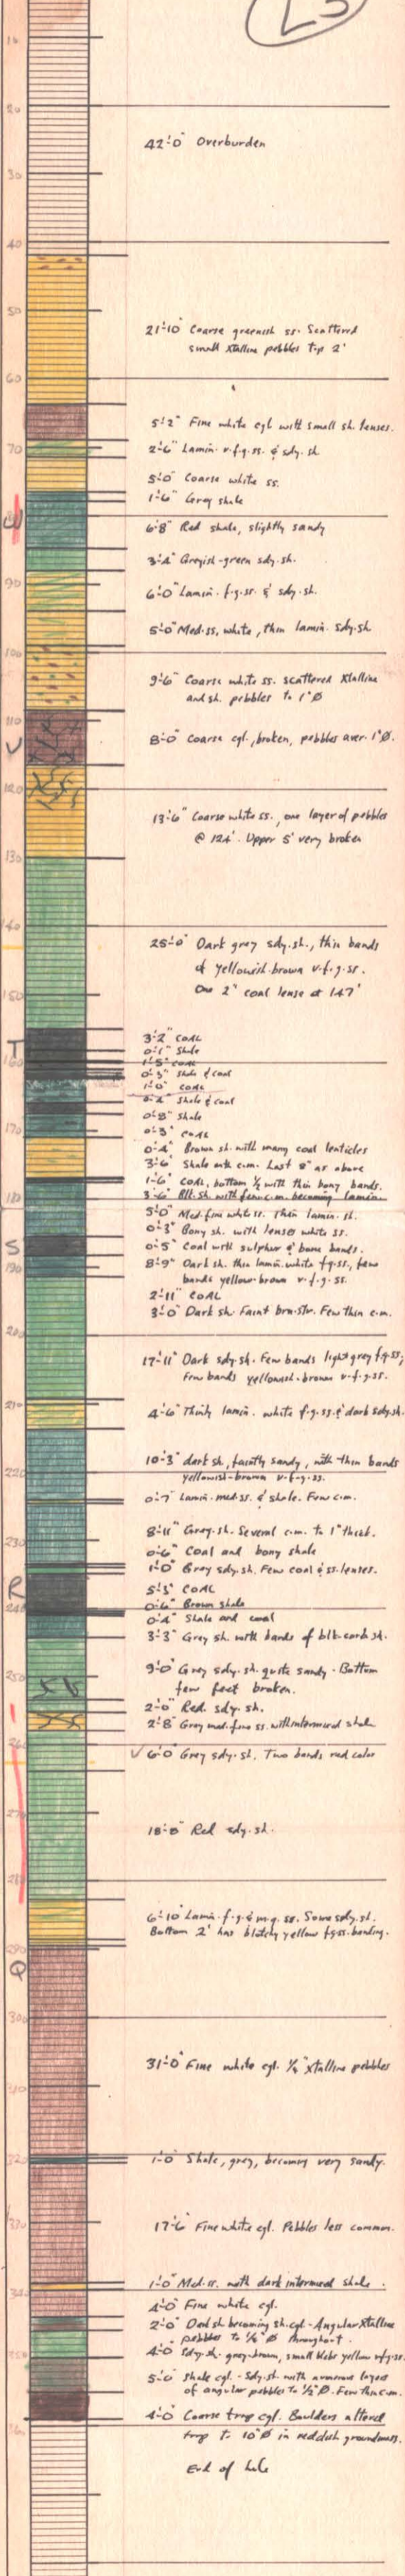 L3
10
20
42'-0" Overburden
30
40
50
21'-10" Coarse greenish ss. Scattered
small xtalline pebbles top 2'
60
5'-2" Fine white cgl with small sh. lenses.
70
2'-6" Lamin. v.f.g.ss. & sdy. sh.
5'-0" Coarse white ss.
1'-6" Grey shale
W
6'-8" Red shale, slightly sandy
3'-4" Greyish-green sdy. sh.
90
6'-0" Lamin. f.g.ss. & sdy. sh.
5'-0" Med. ss, white, thin lamin. sdy. sh
100
9'-6" Coarse white ss. scattered xtalline
and sh. pebbles to 1"Ø
110
V
8'-0" Coarse cgl., broken, pebbles aver. 1"Ø.
120
13'-6" Coarse white ss., one layer of pebbles
@ 124'. Upper 5' very broken
130
140
25'-0" Dark grey sdy. sh., thin bands
of yellowish-brown v.f.g.ss.
One 2" coal lense at 147'
150
T
3'-2" COAL
0'-1" Shale
160
1'-5" COAL
0'-3" Shale & coal
1'-0" COAL
0'-2" Shale & coal
0'-8" Shale
170
0'-3" COAL
0'-4" Brown sh. with many coal lenticles
3'-6" Shale with c.m. Last 8" as above
1'-6" COAL, bottom ½ with thin bony bands.
3'-6" Blk. sh. with few c.m. becoming lamin
180
5'-0" Med. fine white ss. Thin lamin. sh.
0'-3" Bony sh. with lenses white ss.
S
0'-5" Coal with sulphur & bone bands.
190
8'-9" Dark sh. thin lamin. white f.g.ss., few
bands yellow-brown v.f.g.ss.
2'-11" COAL
3'-0" Dark sh. Faint brn. str. Few thin c.m.
200
17'-11" Dark sdy. sh. Few bands light grey f.g.ss;
Few bands yellowish-brown v.f.g.ss.
210
4'-6" Thinly lamin. white f.g.ss. & dark sdy. sh.
10'-3" dark sh, faintly sandy, with thin bands
220
yellowish-brown v.f.g.ss.
0'-7" Lamin. med. ss. & shale. Few c.m.
230
8'-11" Grey. sh. Several c.m. to 1" thick.
0'-6" Coal and bony shale
1'-0" Grey sdy. sh. Few coal & ss. lenses.
R
5'-3" COAL
240
0'-6" Brown shale
0'-4" Shale and coal
3'-3" Grey sh. with bands of blk. carb. sh.
250
9'-0" Grey sdy. sh. quite sandy. Bottom
few feet broken.
2'-0" Red. sdy. sh.
2'-8" Grey med. fine ss. with intermixed shale
260
✓ 6'-0" Grey sdy. sh. Two bands red color
270
18'-8" Red sdy. sh.
280
6'-10" Lamin. f.g. & m.g. ss. Some sdy. sh.
Bottom 2' has blotchy yellow f.g.ss. banding.
290
Q
300
31'-0" Fine white cgl. ¼" xtalline pebbles
310
320
1'-0" Shale, grey, becoming very sandy.
330
17'-6" Fine white cgl. Pebbles less common.
1'-0" Med. ss. with dark intermixed shale.
340
4'-0" Fine white cgl.
2'-0" Dark sh becoming sh. cgl - Angular xtalline
pebbles to ¼"Ø throughout.
350
4'-0" Sdy. sh. grey-brown, small blebs yellow v.f.g.ss.
5'-0" Shale cgl. - Sdy. sh. with numerous layers
of angular pebbles to ½"Ø. Few thin c.m.
360
4'-0" Coarse trap cgl. Boulders altered
trap to 10"Ø in reddish groundmass.
End of hole